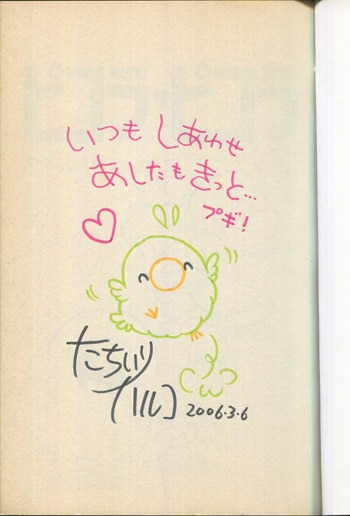 いつも しあわせ
あしたも きっと...
プギ!
たちいり
ハルコ
2006.3.6